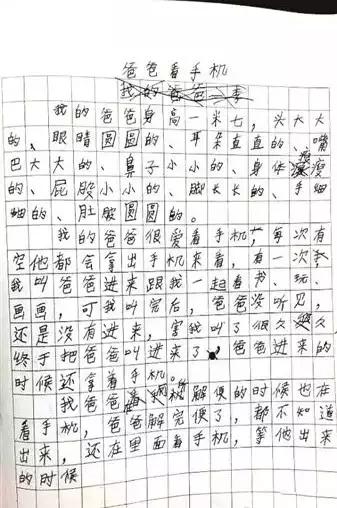 爸爸看手机
我的爸爸身高一米七,头大大
的、眼睛圆圆的、耳朵直直的、嘴
巴大大的、鼻子小小的、身体瘦瘦
的、屁股小小的、脚长长的、手细
细的、肚脸圆圆的。
我的爸爸很爱看手机,每次有
空他都会拿出手机来看,有一次,
我叫爸爸进来跟我一起看书、玩、
画画,可我叫完后,爸爸没听见,
还是没有进来,害我叫了很久很久,
终于把爸爸叫进来了。爸爸进来的
时候还拿着手机。
我爸爸解便的时候也在
看手机,爸爸解完便了,都不知道
出来,还在里面看手机,等他出来
的时候